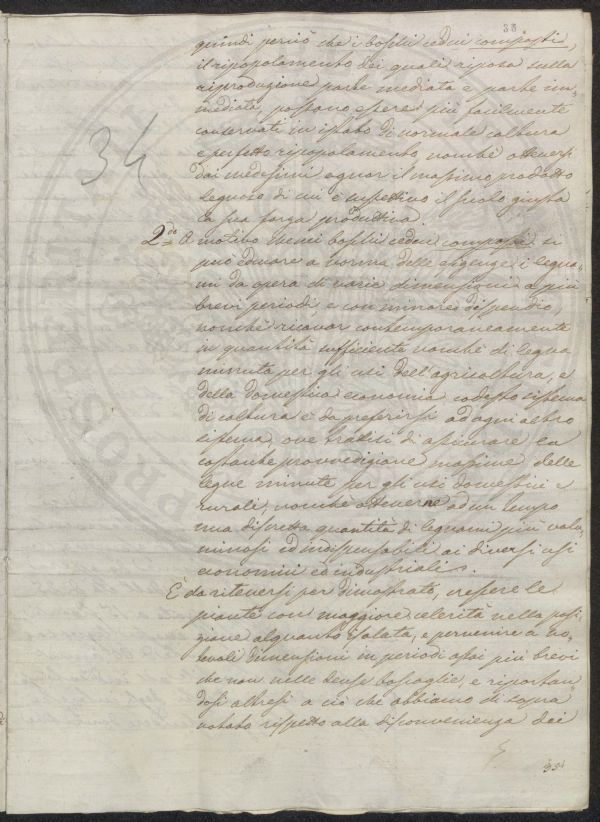 33
quindi perciò che i boschi cedui composti,
il ripopolamento dei quali riposa sulla
riproduzione parte mediata e parte im-
mediata, possono essere più facilmente
conservati in istato di normale coltura
e perfetto ripopolamento, nonchè ottenersi
dai medesimi ognor il massimo prodotto
legnoso di cui è suscettivo il suolo giusta
la sua forza produttiva.
34
2do A motivo che nei boschi cedui composti si
può educare a norma delle esigenze i legna-
mi da opera di varia dimensione a più
brevi periodi, e con minore dispendio,
nonchè ricavar contemporaneamente
in quantità sufficiente nonchè di legna
minuta per gli usi dell'agricoltura, e
della domestica economia codesto sistema
di coltura è da preferirsi ad ogni altro
sistema, ove trattisi di assicurare la
costante provvedigione massime delle
legne minute per gli usi domestici e
rurali, nonchè ottenere ad un tempo
una discretta quantità di legnami più volu-
minosi ed indispensabili ai diversi usi
economici ed industriali.
È da ritenersi per dimostrato, crescere le
piante con maggiore celerità nella posi-
zione alquanto isolata, e pervenire a no-
tevoli dimensioni in periodi assai più brevi
che non nelle dense boscaglie, e riportan-
dosi altresì a ciò che abbiamo di sopra
notato rispetto alla disconvenienza dei